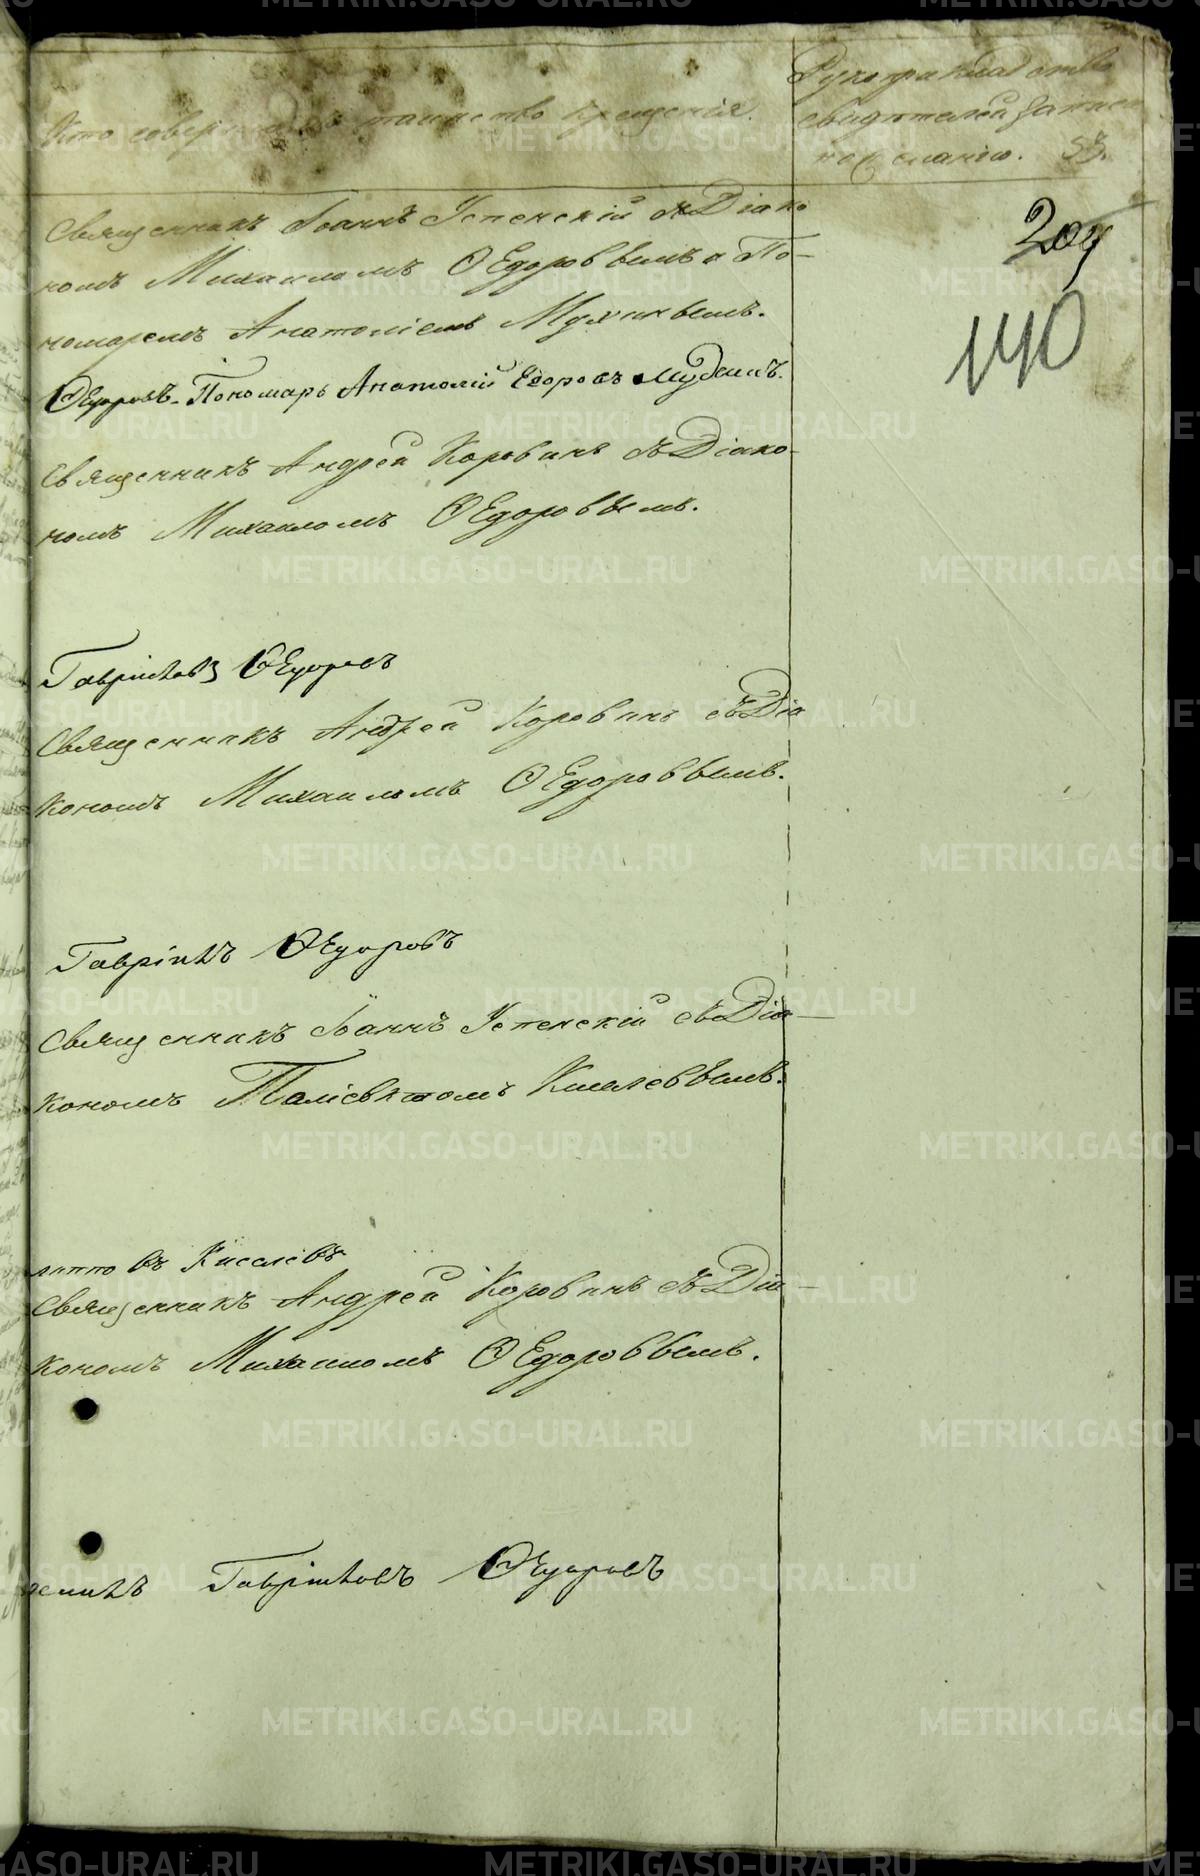 Кто совершалъ таинство крещенія.
Рукоприкладство
свидѣтелей записи
по желанію. 53.
209
140
Священникъ Іоаннъ Успенскій съ Діако
номъ Михаиломъ Ѳедоровымъ и По-
номаремъ Анатоліемъ
Ѳедоровъ. Пономарь Анатолій Егоровъ
Священникъ Андрей Коровинъ съ Діако-
номъ Михаиломъ Ѳедоровымъ.
Гавріиловъ Ѳедоровъ
Священникъ Андрей Коровинъ съ Діа
кономъ Михаиломъ Ѳедоровымъ.
Гавріилъ Ѳедоровъ
Священникъ Іоаннъ Успенскій съ Діа-
кономъ Киселевымъ.
Киселевъ
Священникъ Андрей Коровинъ съ Діа-
кономъ Михаиломъ Ѳедоровымъ.
Гавріиловъ Ѳедоровъ
METRIKI.GASO-URAL.RU